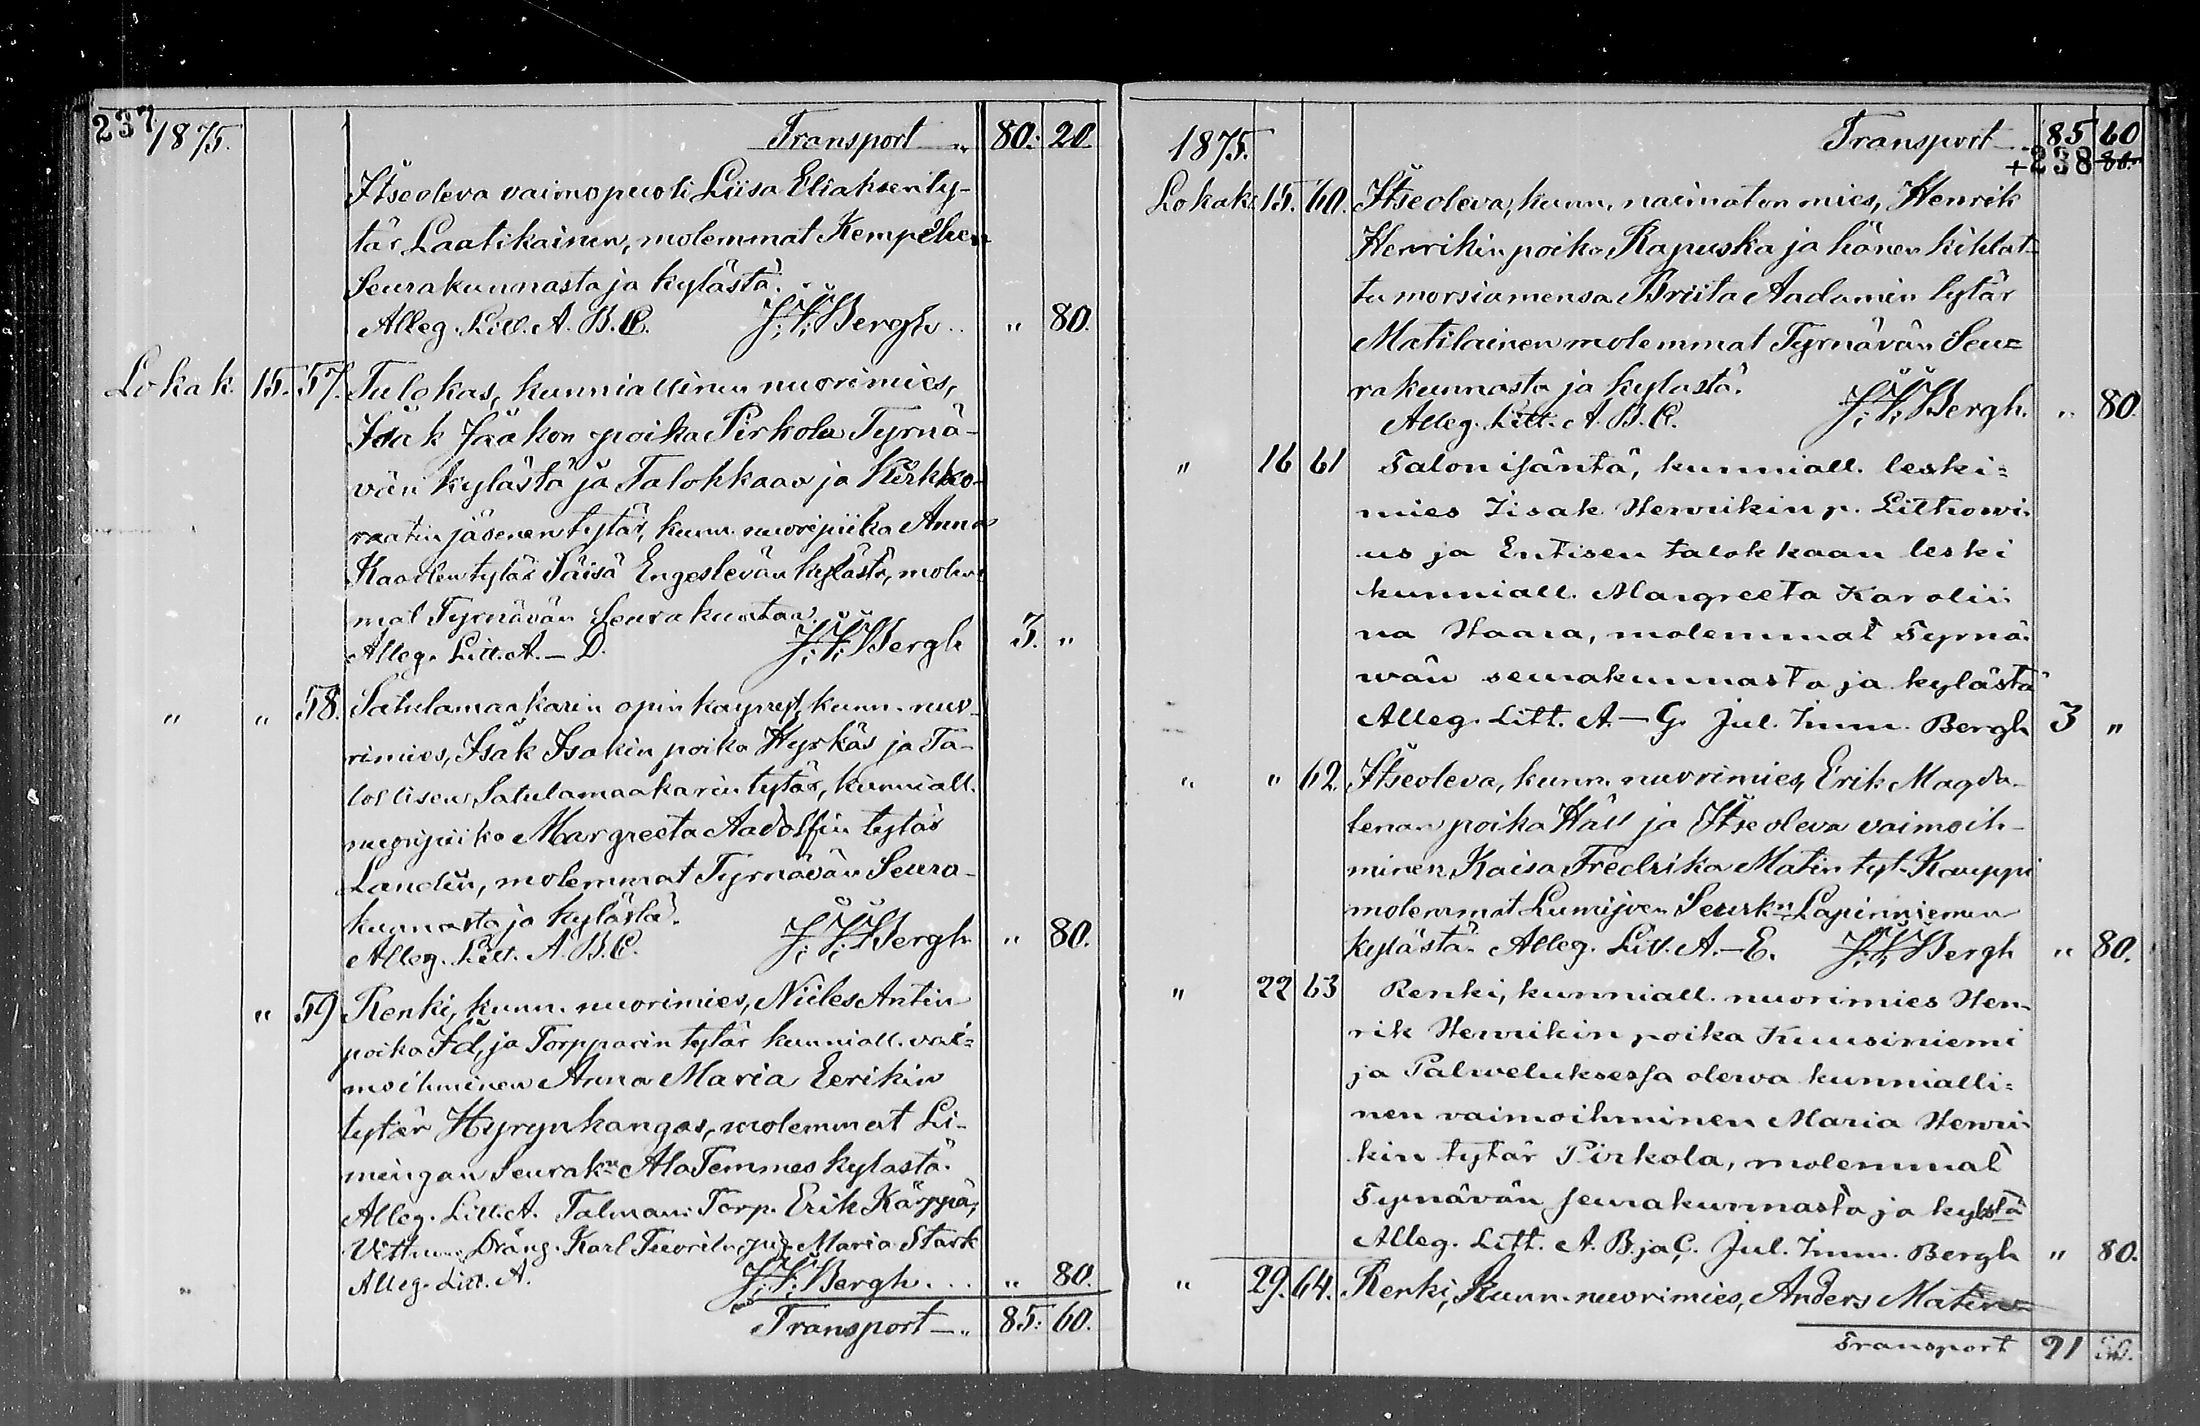 237
1875. Transport — „ 80: 20.
Itseoleva vaimopuoli Liisa Eliaksenty-
tär Laatikainen, molemmat Kempelen
Seurakunnasta ja kylästä.
Alleg. Litt. A. B. C. J. I. Bergh „ 80.
Lokak. 15. 57. Tulokas, kunniallinen nuorimies,
Isäk Jääkon poika Pirkola Tyrnä-
vän kylästä ja Talokkaan ja Kirkko-
raatin jäsenen tytär, kunn. nuoripiika Anna
Kaarlen tytär Säisä Engeslevän kylästä, molem-
mat Tyrnävän Seurakuntaa.
Alleg. Litt. A. — D. J. I. Bergh 3. „
„ „ 58. Satulamaakarin opin käynyt, kunn. nuo-
rimies, Isäk Isakin poika Hyrkäs ja Ta-
lollisen Satulamaakarin tytär, kunniall.
nuoripiika Margreeta Aadolfin tytär
Landin, molemmat Tyrnävän Seura-
kunnasta ja kylästä.
Alleg. Litt. A. B. C. J. I. Bergh „ 80.
„ 59 Renki, kunn. nuorimies, Niiles Antin
poika Id, ja Torpparin tytär kunniall. vai-
moihminen Anna Maria Eerikin
tytär Hyrynkangas, molemmat Li-
mingan Seurakn Ala Temmes kylästä.
Alleg. Litt. A. Talman: Torp. Erik Kärppä,
Vittne: Dräng. Karl Tuorila, pig. Maria Stark
Alleg. Litt. A. J. I. Bergh „ 80.
Transport — „ 85: 60.
1875. Transport 85 60
+238 80.
Lokak. 15. 60. Itseoleva, kunn. naimaton mies, Henrik
Henrikin poika Rapuska ja hänen kihlat-
tu morsiamensa Briita Aadamin tytär
Matilainen molemmat Tyrnävän Seu-
rakunnasta ja kylästä.
Alleg. Litt. A. B. C. J. I. Bergh. „ 80
„ 16 61 Talon isäntä, kunniall. leski-
mies Iisak Henrikin p. Lithovi-
us ja Entisen talokkaan leski
kunniall. Margreeta Karolii-
na Haara, molemmat Tyrnä-
wän seurakunnasta ja kylästä
Alleg. Litt. A. — G. Jul. Imm. Bergh 3 „
„ „ 62. Itseoleva, kunn. nuorimies, Erik Magda-
lenan poika Häll ja Itseoleva vaimoih-
minen Kaisa Fredrika Matin tyt. Kauppi
molemmat Lumijoen Seurkn Lapinniemen
kylästä. Alleg. Litt. A. — E. J. I. Bergh „ 80.
„ 22 63 Renki, kunniall. nuorimies Hen-
rik Henrikin poika Kuusiniemi
ja Palweluksessa olewa kunnialli-
nen vaimoihminen Maria Henri-
kin tytär Pirkola, molemmat
Tyrnävän seurakunnasta ja kylstä
Alleg. Litt. A. B. ja C. Jul. Imm. Bergh „ 80.
„ 29. 64. Renki, Kunn. nuorimies, Anders Matin
Transport 91